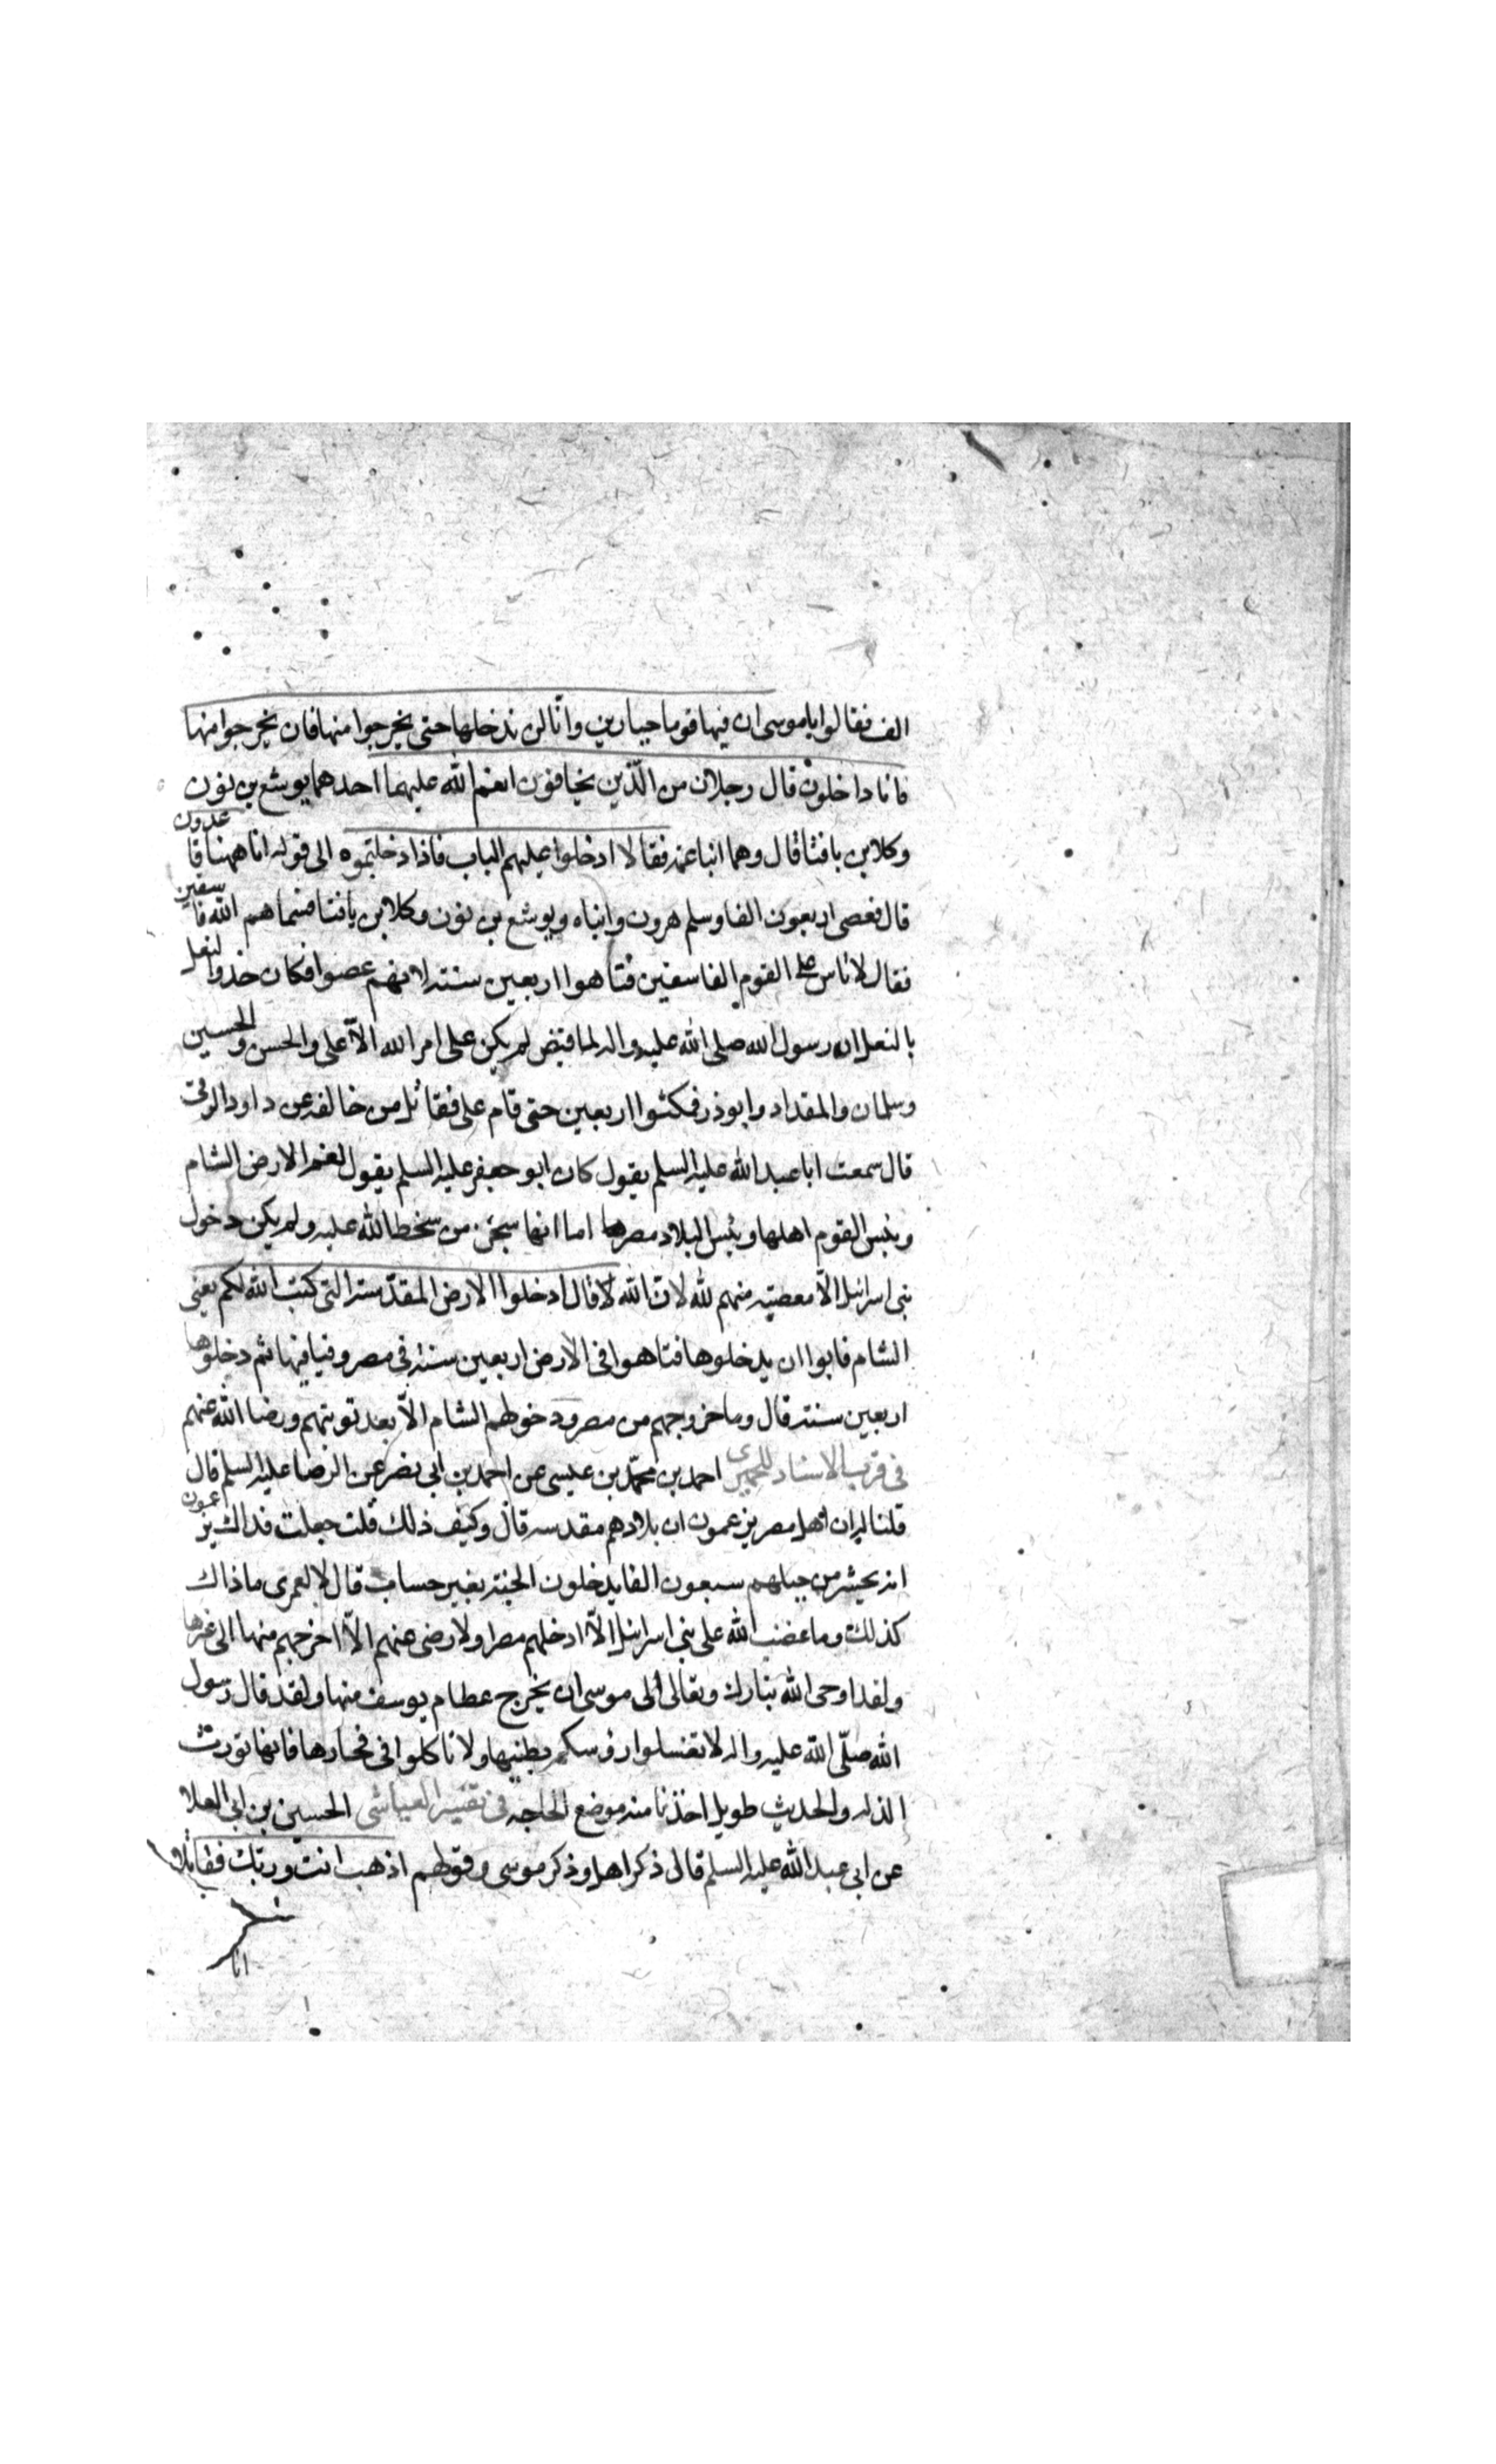 الف فقالوا يا موسى ان فيها قوما جبارين وانّا لن ندخلها حتى يخرجوا منها فان يخرجوا منها
فانا داخلون قال رجلان من الّذين يخافون انعم الله عليهما احدهما يوشع بن نون
وكلابن يافنا قال وهما ابنا عمه فقالا ادخلوا عليهم الباب فاذا دخلتموه الى قوله انا ههنا قاعدون
قال فعصى اربعون الفا وسلم هرون وابناه ويوشع بن نون وكلابن يافنا فسماهم الله فاسقين
فقال لا تاس على القوم الفاسقين فتاهوا اربعين سنة لانهم عصوا فكان حذوا لنعل
بالنعل ان رسول الله صلى الله عليه واله لما قبض لم يكن على امر الله الاّ على والحسن والحسين
وسلمان والمقداد وابوذر فمكثوا اربعين حتى قام على فقاتل من خالفه عن داود الرقى
قال سمعت ابا عبد الله عليه السلم يقول كان ابو جعفر عليه السلم يقول لغنم الارض الشام
وبئس القوم اهلها وبئس البلاد مصر اما انها سجن من سخط الله عليه ولم يكن دخول
بنى اسرائيل الاّ معصيته منهم لله لانّ الله لا قال ادخلوا الارض المقدّسة التى كتب الله لكم يعنى
الشام فابوا ان يدخلوها فتاهوا فى الارض اربعين سنة فى مصر وفيافيها ثم دخلوها
اربعين سنة قال وما خروجهم من مصر ودخولهم الشام الاّ بعد توبتهم ورضا الله عنهم
فى قرب الاسناد للحميرى احمد بن محمّد بن عيسى عن احمد بن ابى نصر عن الرضا عليه السلم قال
قلنا له ان اهل مصر يزعمون ان بلادهم مقدسه قال وكيف ذلك قلت جعلت فداك يزعمون
انه يحشر من جبلهم سبعون الفا يدخلون الجنة بغير حساب قال لا لعمرى ما ذاك
كذلك وما غضب الله على بنى اسرائيل الاّ ادخلهم مصر ولا رضى عنهم الاّ اخرجهم منها الى غيرها
ولقد اوحى الله تبارك وتعالى الى موسى ان يخرج عظام يوسف منها ولقد قال رسول
الله صلّى الله عليه واله لا تغسلوا رؤسكم بطينها ولا تاكلوا فى فخارها فانها تورث
الذله والحديث طويل اخذنا منه موضع الحاجه فى تفسير العياشى الحسين بن ابى العلا
عن ابى عبد الله عليه السلم قال ذكر اهل وذكر موسى وقولهم اذهب انت وربك فقاتلا
انا